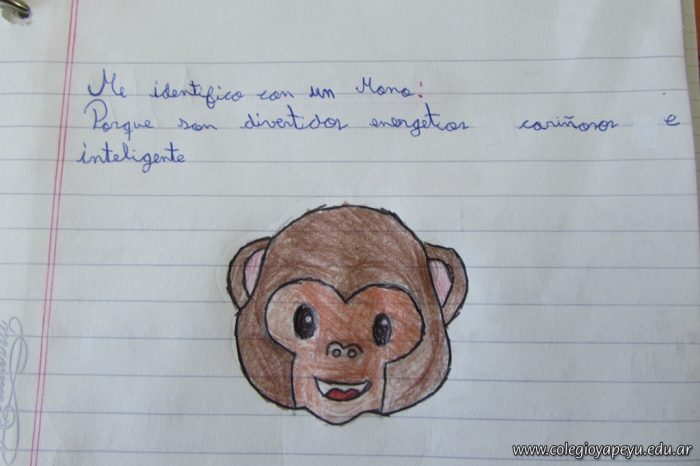 Me identifico con un Mono:
Porque son divertidos energeticos cariñosos e
inteligente
www.colegioyapeyu.edu.ar